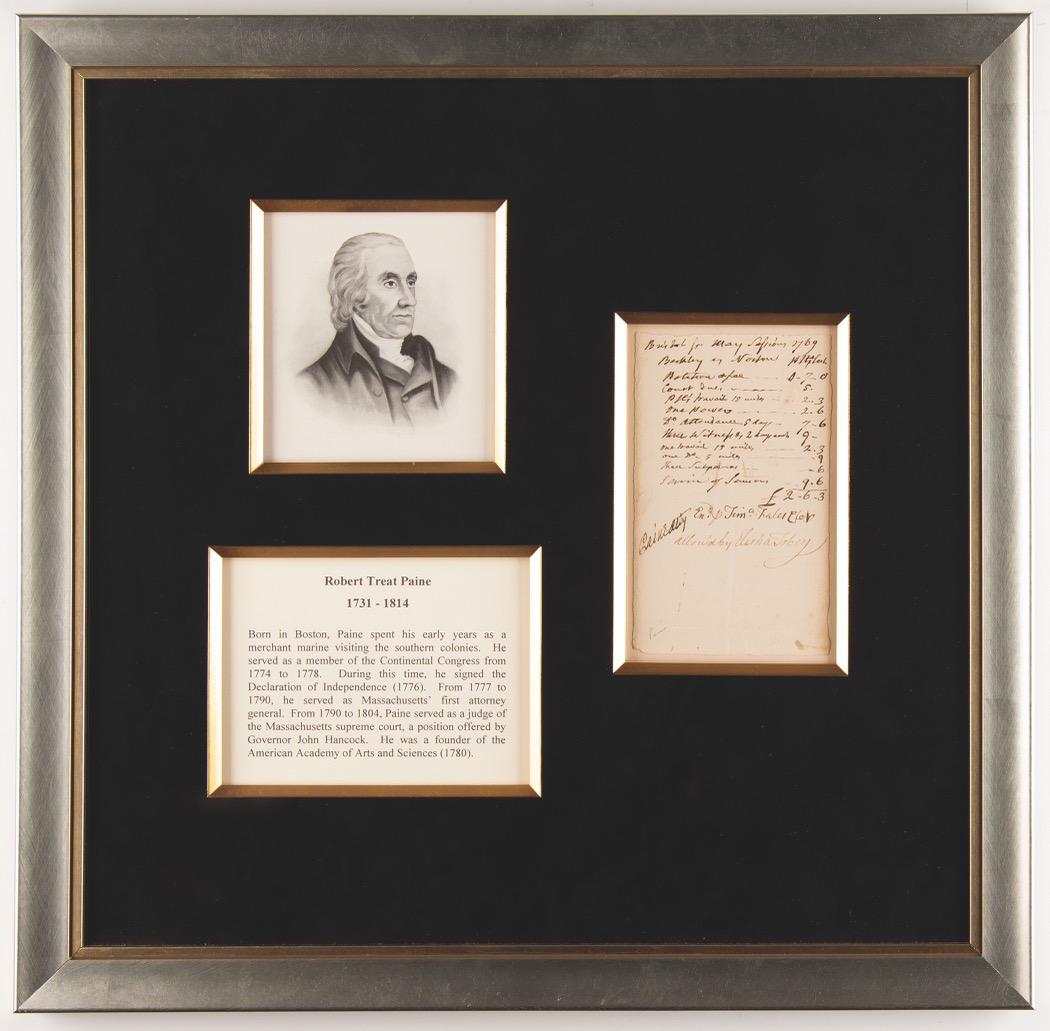 Robert Treat Paine
1731 - 1814
Born in Boston, Paine spent his early years as a
merchant marine visiting the southern colonies. He
served as a member of the Continental Congress from
1774 to 1778. During this time, he signed the
Declaration of Independence (1776). From 1777 to
1790, he served as Massachusetts' first attorney
general. From 1790 to 1804, Paine served as a judge of
the Massachusetts supreme court, a position offered by
Governor John Hancock. He was a founder of the
American Academy of Arts and Sciences (1780).
Bristol for May Sessions 1769
Berkley Norton
0-7-0
Court dues 5-
travail 18 miles 2-3
one Power 2-6
Do attendance 5 days 7-6
three Witnesses 2 days 9-
one travail 18 miles 2.3
one Do 5 miles -9
three Subpenas -6
Service of 9-6
£ 2-6-3
Fales Cler
Paine atty
allow'd by Elisha Tobey